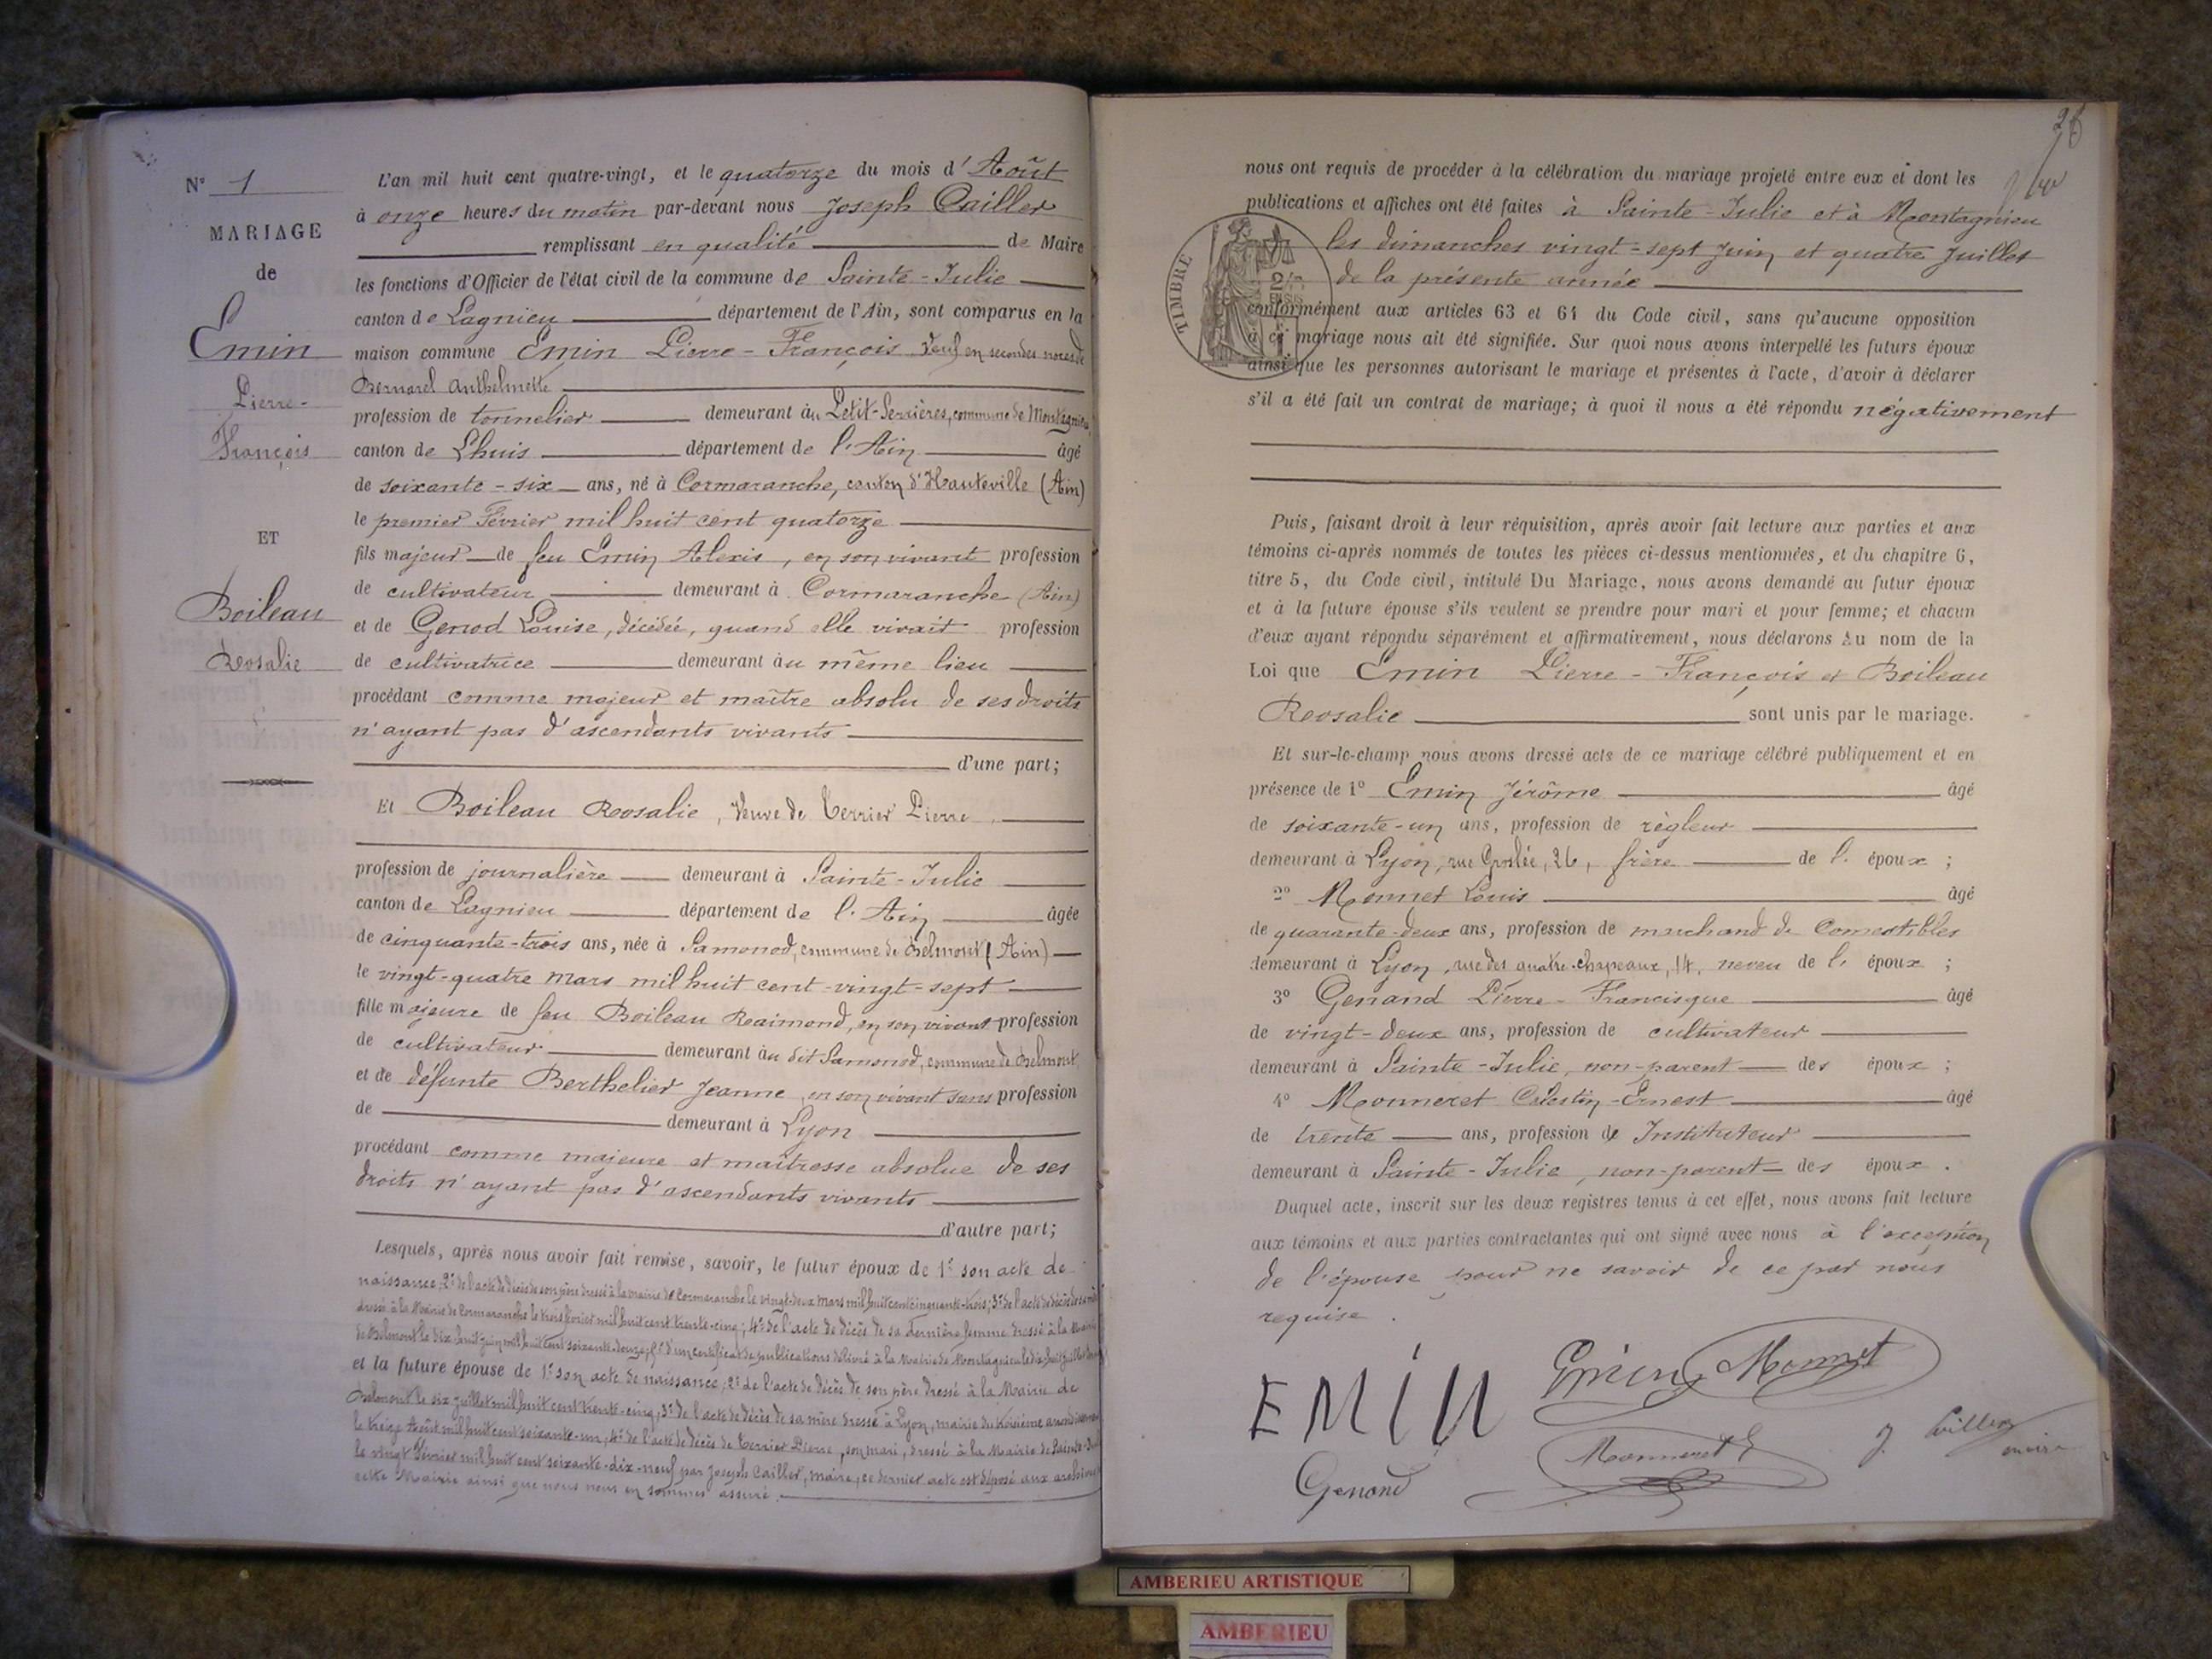 N° 1
MARIAGE
de
Emin
Pierre-
François
ET
Boileau
Rosalie
L'an mil huit cent quatre-vingt, et le quatorze du mois d'Août
à onze heures du matin par-devant nous Joseph Cailler
remplissant en qualité de Maire
les fonctions d'Officier de l'état civil de la commune de Sainte-Julie
canton de Lagnieu département de l'Ain, sont comparus en la
maison commune Emin Pierre-François Veuf en secondes noces de
Bernard Anthelmette
profession de tonnelier demeurant au Petit-Serrières, commune de Montagnieu
canton de Lhuis département de l'Ain âgé
de soixante-six ans, né à Cormaranche, canton d'Hauteville (Ain)
le premier Février mil huit cent quatorze
fils majeur de feu Emin Alexis, en son vivant profession
de cultivateur demeurant à Cormaranche (Ain)
et de Genod Louise, décédée, quand elle vivait profession
de cultivatrice demeurant au même lieu
procédant comme majeur et maître absolu de ses droits
n'ayant pas d'ascendants vivants
d'une part;
Et Boileau Rosalie, Veuve de Terrier Pierre
profession de journalière demeurant à Sainte-Julie
canton de Lagnieu département de l'Ain âgée
de cinquante-trois ans, née à Samonod, commune de Belmont (Ain)
le vingt-quatre Mars mil huit cent-vingt-sept
fille majeure de feu Boileau Raimond, en son vivant profession
de cultivateur demeurant au dit Samonod, commune de Belmont
et de défunte Berthelier Jeanne, en son vivant sans profession
de demeurant à Lyon
procédant comme majeure et maîtresse absolue de ses
droits n'ayant pas d'ascendants vivants
d'autre part;
Lesquels, après nous avoir fait remise, savoir, le futur époux de 1° son acte de
naissance; 2° de l'acte de décès de son père dressé à la Mairie de Cormaranche le vingt-deux Mars mil huit cent cinquante-trois; 3° de l'acte de décès de sa mère
dressé à la Mairie de Cormaranche le trois Février mil huit cent trente-cinq; 4° de l'acte de décès de sa dernière femme dressé à la Mairie
de Belmont le dix-huit Juin mil huit cent soixante-douze; 5° d'un certificat de publications délivré à la Mairie de Montagnieu le dix-huit Juillet
et la future épouse de 1° son acte de naissance; 2° de l'acte de décès de son père dressé à la Mairie de
Belmont le six Juillet mil huit cent trente-cinq; 3° de l'acte de décès de sa mère dressé à Lyon, mairie du troisième arrondissement
le treize Août mil huit cent soixante-un; 4° de l'acte de décès de Terrier Pierre, son mari, dressé à la Mairie de Sainte-Julie
le vingt Février mil huit cent soixante-dix-neuf par Joseph Cailler, maire, ce dernier acte est déposé aux archives
cette Mairie ainsi que nous nous en sommes assuré.
26
nous ont requis de procéder à la célébration du mariage projeté entre eux et dont les
publications et affiches ont été faites à Sainte-Julie et à Montagnieu
les dimanches vingt-sept Juin et quatre Juillet
de la présente année
TIMBRE
conformément aux articles 63 et 64 du Code civil, sans qu'aucune opposition
à ce mariage nous ait été signifiée. Sur quoi nous avons interpellé les futurs époux
ainsi que les personnes autorisant le mariage et présentes à l'acte, d'avoir à déclarer
s'il a été fait un contrat de mariage; à quoi il nous a été répondu négativement
Puis, faisant droit à leur réquisition, après avoir fait lecture aux parties et aux
témoins ci-après nommés de toutes les pièces ci-dessus mentionnées, et du chapitre 6,
titre 5, du Code civil, intitulé Du Mariage, nous avons demandé au futur époux
et à la future épouse s'ils veulent se prendre pour mari et pour femme; et chacun
d'eux ayant répondu séparément et affirmativement, nous déclarons Au nom de la
Loi que Emin Pierre-François et Boileau
Rosalie sont unis par le mariage.
Et sur-le-champ nous avons dressé acte de ce mariage célébré publiquement et en
présence de 1° Emin Jérôme âgé
de soixante-un ans, profession de régleur
demeurant à Lyon, rue Grolée, 26, frère de l'époux;
2° Monnet Louis âgé
de quarante-deux ans, profession de marchand de Comestibles
demeurant à Lyon, rue des quatre-chapeaux, 14, neveu de l'époux;
3° Genand Pierre-Francisque âgé
de vingt-deux ans, profession de cultivateur
demeurant à Sainte-Julie, non-parent des époux;
4° Monneret Célestin-Ernest âgé
de trente ans, profession de Instituteur
demeurant à Sainte-Julie, non-parent des époux.
Duquel acte, inscrit sur les deux registres tenus à cet effet, nous avons fait lecture
aux témoins et aux parties contractantes qui ont signé avec nous à l'exception
de l'épouse pour ne savoir de ce par nous
requise.
EMIN
Emin
Monnet
Genand
Monneret E
J. Cailler
maire
AMBERIEU ARTISTIQUE
AMBERIEU